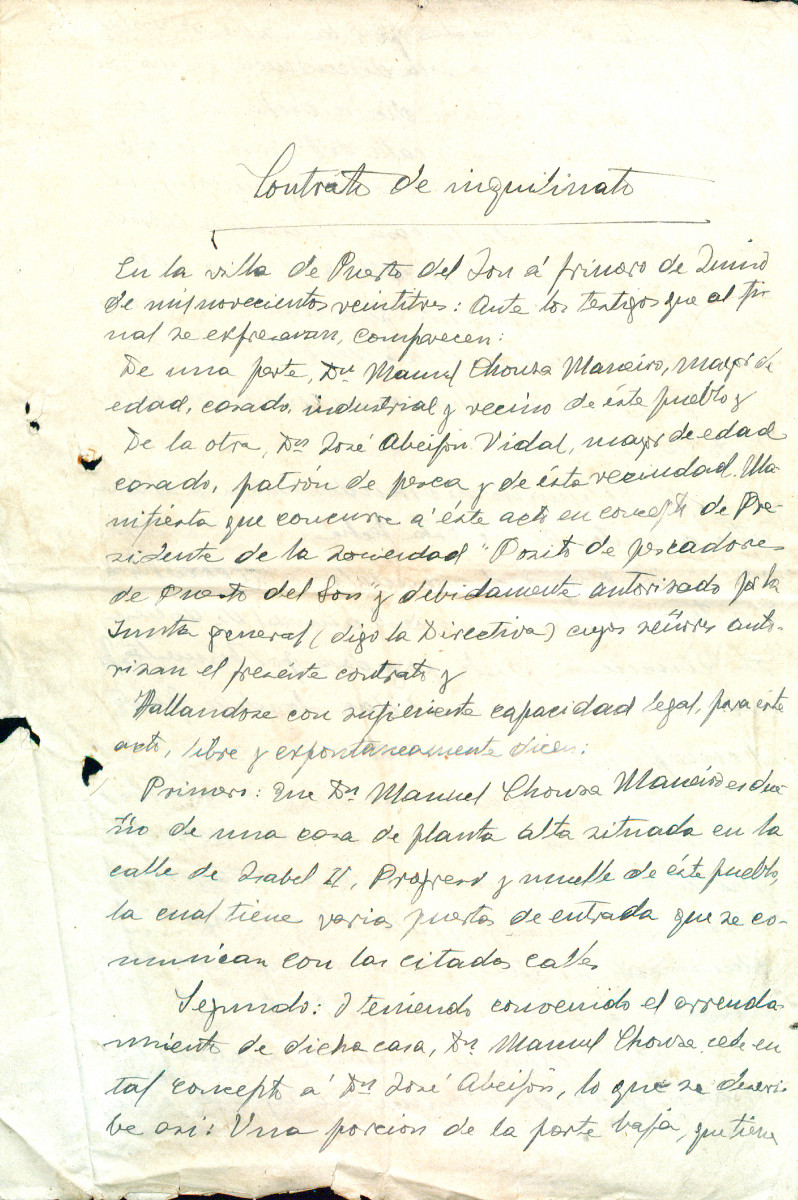 Contrato de inquilinato
En la villa de Puerto del Son á primero de Junio
de mil novecientos veintitres: Ante los testigos que al fi-
nal se expresaran, comparecen:
De una parte, Dn Manuel Chouza Maneiro, mayor de
edad, casado, industrial y vecino de éste pueblo y
De la otra, Dn José Abeijón Vidal, mayor de edad
casado, patrón de pesca y de ésta vecindad. Ma-
nifiesta que concurre á éste acto en concepto de Pre-
sidente de la sociedad "Posito de pescadores
de Puerto del Son" y debidamente autorizado por la
Junta general (digo la Directiva) cuyos señores auto-
rizan el presente contrato y
Hallandose con suficiente capacidad legal, para este
acto, libre y expontaneamente dicen:
Primero: Que Dn Manuel Chouza Maneiro es due-
ño de una casa de planta alta situada en la
calle de Isabel II, Progreso y muelle de éste pueblo,
la cual tiene varias puertas de entrada que se co-
munican con las citadas calles
Segundo: Y teniendo convenido el arrenda-
miento de dicha casa, Dn Manuel Chouza cede en
tal concepto á Dn José Abeijón, lo que se descri-
be asi: Una porcion de la parte baja, que tiene